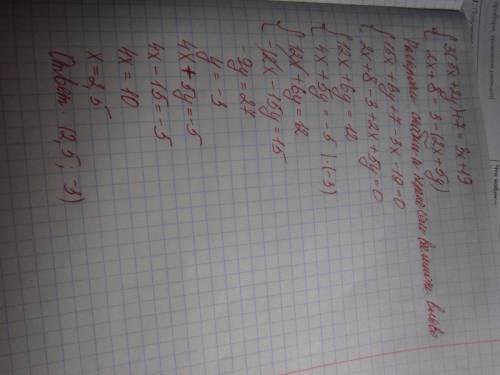 { 3(5x + 2y) + 7 = 3x + 19
2x + 8 = 3 - (2x + 5y)
Раскроем скобки и перенесем влево
{ 15x + 6y + 7 - 3x - 19 = 0
2x + 8 - 3 + 2x + 5y = 0
{ 12x + 6y = 12
4x + 5y = -5 | · (-3)
{ 12x + 6y = 12
-12x - 15y = 15
-9y = 27
y = -3
4x + 5y = -5
4x - 15 = -5
4x = 10
x = 2,5
Ответ: (2,5; -3)